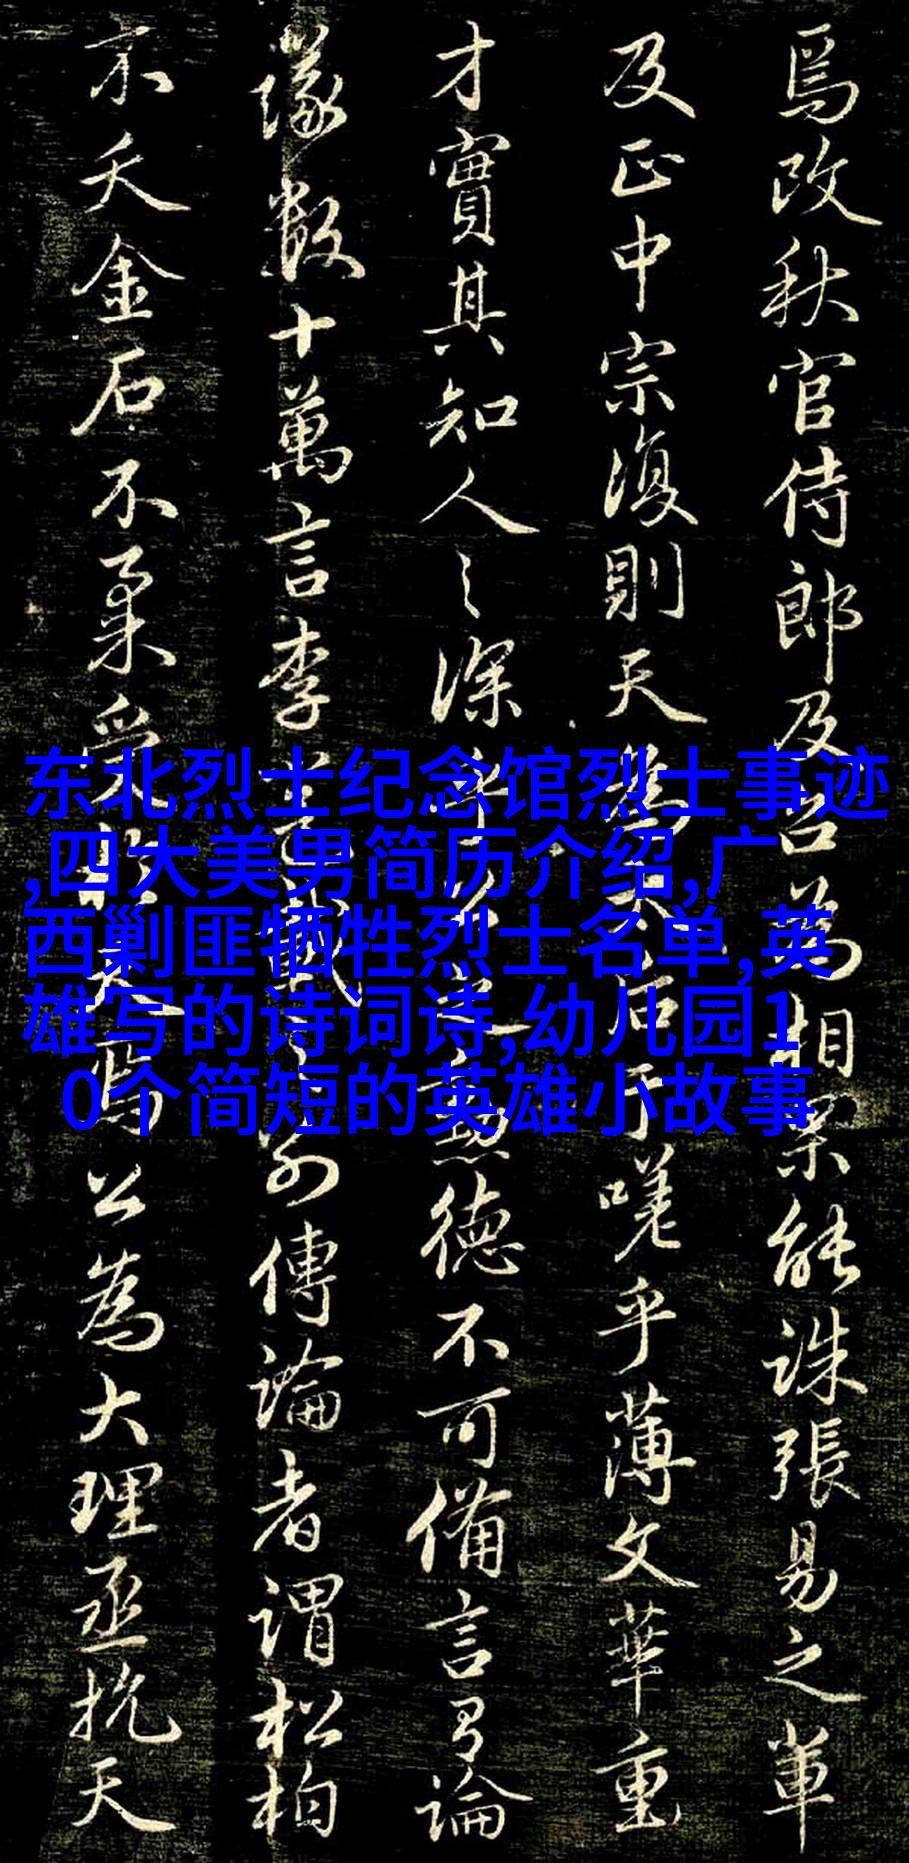 焉改秋官侍郎及召為相果能誅張易之輩
及正中宗復則天為太后于嗟乎薄文華重
才實其知人之深乎公之勲德不可備言有論
議數十萬言李邕載之別傳論者謂松柏
不夭金石不柔受於天焉公為大理丞抗天
东北烈士纪念馆烈士事迹
,四大美男简历介绍,广
西剿匪牺牲烈士名单,英
雄写的诗词诗,幼儿园1
0个简短的英雄小故事